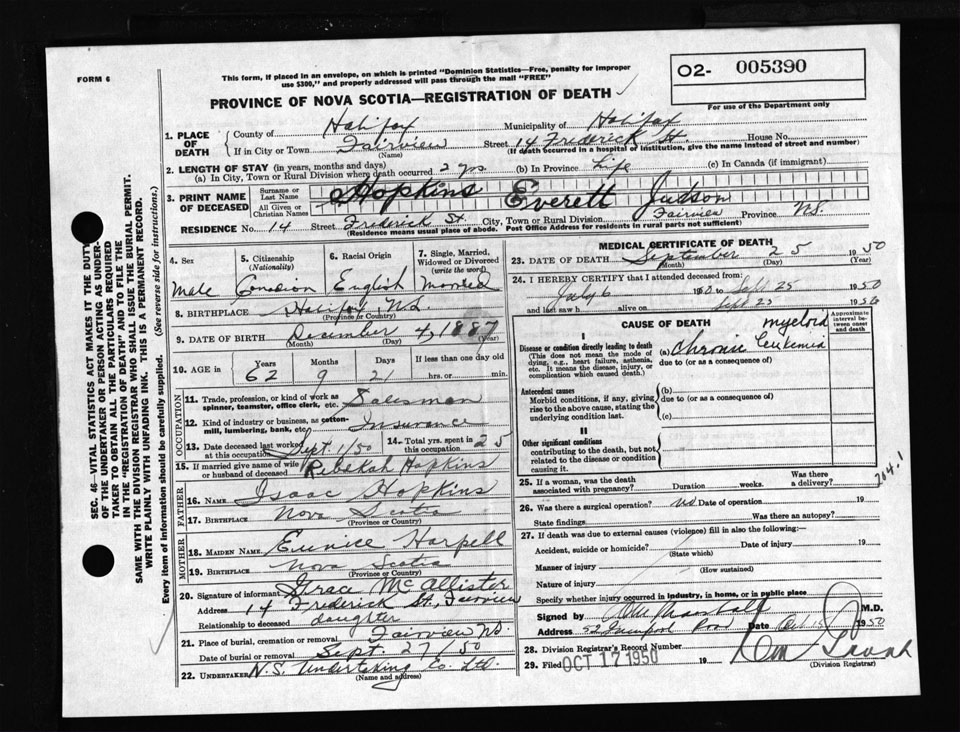 FORM 6
This form, if placed in an envelope, on which is printed "Dominion Statistics—Free, penalty for improper
use $300," and properly addressed will pass through the mail "FREE"
O2- 005390
For use of the Department only
PROVINCE OF NOVA SCOTIA—REGISTRATION OF DEATH
1. PLACE OF DEATH { County of Halifax Municipality of Halifax
If in City or Town Fairview Street 14 Frederick St. House No.
(Name) (If death occurred in a hospital or institution, give the name instead of street and number)
2. LENGTH OF STAY (in years, months and days)
(a) In City, Town or Rural Division where death occurred 2 yrs (b) In Province Life (c) In Canada (if immigrant)
3. PRINT NAME OF DECEASED { Surname or Last Name Hopkins
All Given or Christian Names Everett Judson
RESIDENCE No. 14 Street Frederick St. City, Town or Rural Division Fairview Province N.S.
(Residence means usual place of abode. Post Office Address for residents in rural parts not sufficient)
4. Sex Male
5. Citizenship (Nationality) Canadian
6. Racial Origin English
7. Single, Married, Widowed or Divorced (write the word) Married
8. BIRTHPLACE Halifax, N.S.
(Province or Country)
9. DATE OF BIRTH December 4, 1887
(Month) (Day)
10. AGE in Years 62 Months 9 Days 21 If less than one day old hrs. or min.
OCCUPATION
11. Trade, profession, or kind of work as spinner, teamster, office clerk, etc. Salesman
12. Kind of industry or business, as cotton-mill, lumbering, bank, etc. Insurance
13. Date deceased last worked at this occupation Sept. 1/50 14. Total yrs. spent in this occupation 25
15. If married give name of wife or husband of deceased Rebekah Hopkins
FATHER
16. NAME Isaac Hopkins
17. BIRTHPLACE Nova Scotia
(Province or Country)
MOTHER
18. MAIDEN NAME Eunice Harpell
19. BIRTHPLACE Nova Scotia
(Province or Country)
20. Signature of informant Grace McAllister
Address 14 Frederick St, Fairview
Relationship to deceased daughter
21. Place of burial, cremation or removal Fairview N.S.
Date of burial or removal Sept. 27/50
22. UNDERTAKER N.S. Undertaking Co. Ltd.
(Name and address)
MEDICAL CERTIFICATE OF DEATH
23. DATE OF DEATH September 25 1950
(Month) (Day) (Year)
24. I HEREBY CERTIFY that I attended deceased from:
July 6 1950 to Sept 25 1950
and last saw h alive on Sept 25 1950
CAUSE OF DEATH
Approximate interval between onset and death
I
Disease or condition directly leading to death (This does not mean the mode of dying, e.g., heart failure, asthenia, etc. It means the disease, injury, or complication which caused death.)
(a) Chronic myeloid Leukemia
due to (or as a consequence of)
Antecedent causes
Morbid conditions, if any, giving rise to the above cause, stating the underlying condition last.
(b)
due to (or as a consequence of)
(c)
II
Other significant conditions contributing to the death, but not related to the disease or condition causing it.
204.1
25. If a woman, was the death associated with pregnancy? Duration weeks. Was there a delivery?
26. Was there a surgical operation? no Date of operation 19
State findings Was there an autopsy?
27. If death was due to external causes (violence) fill in also the following:—
Accident, suicide or homicide? Date of injury 19
(State which)
Manner of injury
(How sustained)
Nature of injury
Specify whether injury occurred in industry, in home, or in public place
Signed by Marshall M.D.
Address Road Date 1950
28. Division Registrar's Record Number
29. Filed OCT 17 1950 19
(Division Registrar)
SEC. 46 VITAL STATISTICS ACT MAKES IT THE DUTY
OF THE UNDERTAKER OR PERSON ACTING AS UNDER-
TAKER TO OBTAIN ALL THE PARTICULARS REQUIRED
IN THE "REGISTRATION OF DEATH" AND TO FILE THE
SAME WITH THE DIVISION REGISTRAR WHO SHALL ISSUE THE BURIAL PERMIT.
WRITE PLAINLY WITH UNFADING INK. THIS IS A PERMANENT RECORD.
Every item of information should be carefully supplied. (See reverse side for instructions.)